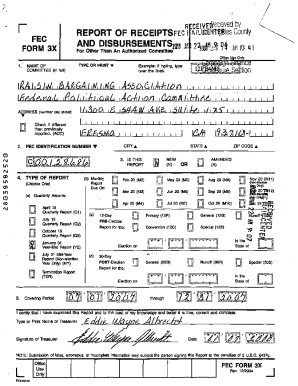 FEC
FORM 3X
REPORT OF RECEIPTS
AND DISBURSEMENTS
For Other Than An Authorized Committee
RECEIVED
Office Use Only
1. NAME OF
COMMITTEE (in full)
TYPE OR PRINT
Example: If typing, type
over the lines.
RAISIN BARGAINING ASSOCIATION
Federal Political Action Committee
ADDRESS (number and street)
1300 E SHAW AVE SUITE 175
Check if different
than previously
reported. (ACC)
FRESNO
CA
2. FEC IDENTIFICATION NUMBER
CITY
STATE
ZIP CODE
C00128686
3. IS THIS
REPORT
NEW
(N)
OR
AMENDED
(A)
4. TYPE OF REPORT
(Choose One)
(a) Quarterly Reports:
April 15
Quarterly Report (Q1)
July 15
Quarterly Report (Q2)
October 15
Quarterly Report (Q3)
January 31
Year-End Report (YE)
July 31 Mid-Year
Report (Non-election
Year Only) (MY)
Termination Report
(TER)
(b) Monthly
Report
Due On:
Feb 20 (M2)
Mar 20 (M3)
Apr 20 (M4)
May 20 (M5)
Jun 20 (M6)
Jul 20 (M7)
Aug 20 (M8)
Sep 20 (M9)
Oct 20 (M10)
(c) 12-Day
PRE-Election
Report for the:
Primary (12P)
General (12G)
Runoff (12R)
Convention (12C)
Special (12S)
Election on
in the
State of
(d) 30-Day
POST-Election
Report for the:
General (30G)
Runoff (30R)
Special (30S)
Election on
in the
State of
5. Covering Period
07 01 2007
through
12 31 2007
I certify that I have examined this Report and to the best of my knowledge and belief it is true, correct and complete.
Type or Print Name of Treasurer
Eddie Wayne Albrecht
Signature of Treasurer
Eddie Wayne Albrecht
Date
NOTE: Submission of false, erroneous, or incomplete information may subject the person signing this Report to the penalties of 2 U.S.C. §437g.
Office
Use
Only
FEC FORM 3X
28039692520
RECEIVED
FEC MAIL CENTER